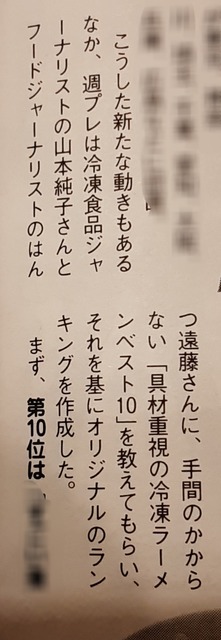 こうした新たな動きもある
なか、週プレは冷凍食品ジャ
ーナリストの山本純子さんと
フードジャーナリストのはん
つ遠藤さんに、手間のかから
ない「具材重視の冷凍ラーメ
ンベスト10」を教えてもらい、
それを基にオリジナルのラン
キングを作成した。
まず、第10位は